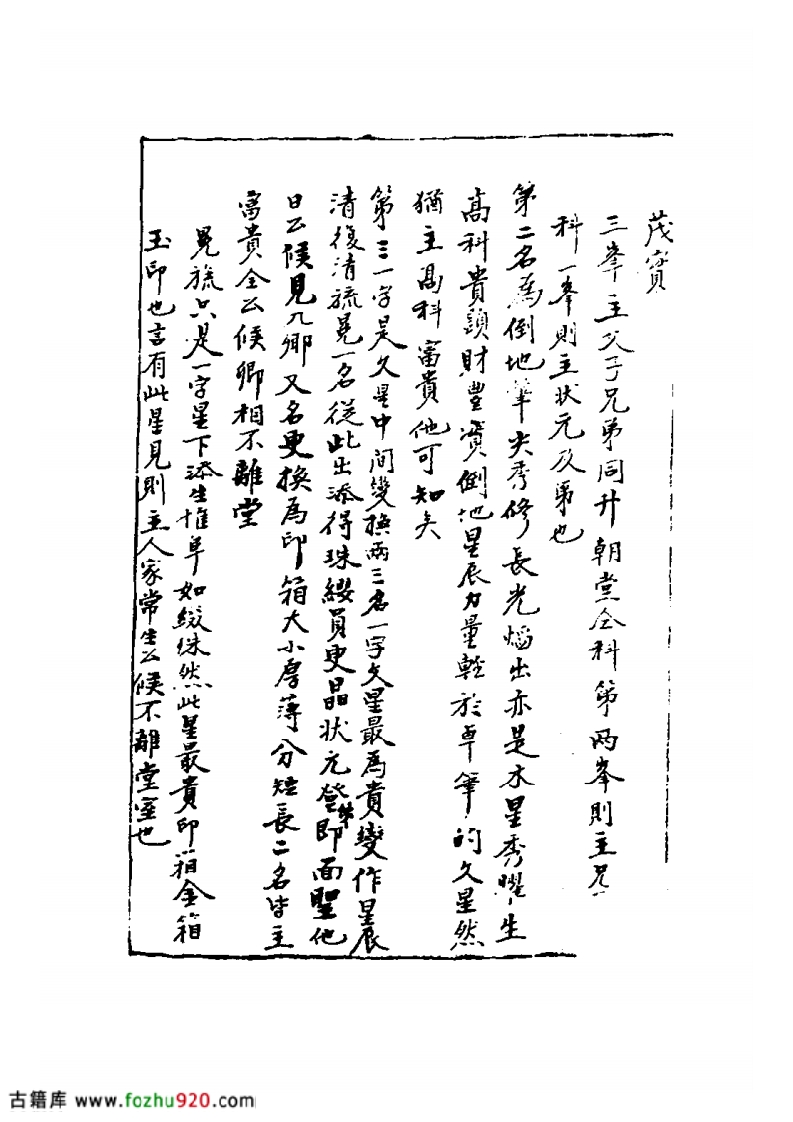 茂實
三峯主父子兄弟同升朝堂仝科第两峯則主兄
科一峯則主状元及第也
第二名為倒地筆尖秀修長光焰出亦是木星秀曜生
高科貴顕財豐實倒地星辰力量輕於卓筆的文星然
猶主高科富貴他可知矣
第三一字是文星中间變換兩三名一字文星最為貴變作星辰
清復清旒冕一名從此出添得珠纓員更晶状元登第即面聖他
日公候見九卿又名更换為印箱大小厚薄分短長二名皆主
富貴全公候卿相不離堂
冕旒只是一字星下添生堆阜如綴珠然此星最貴印箱金箱
玉印也言有此星見則主人家常生公候不離堂室也
古籍库 www.fozhu920.com